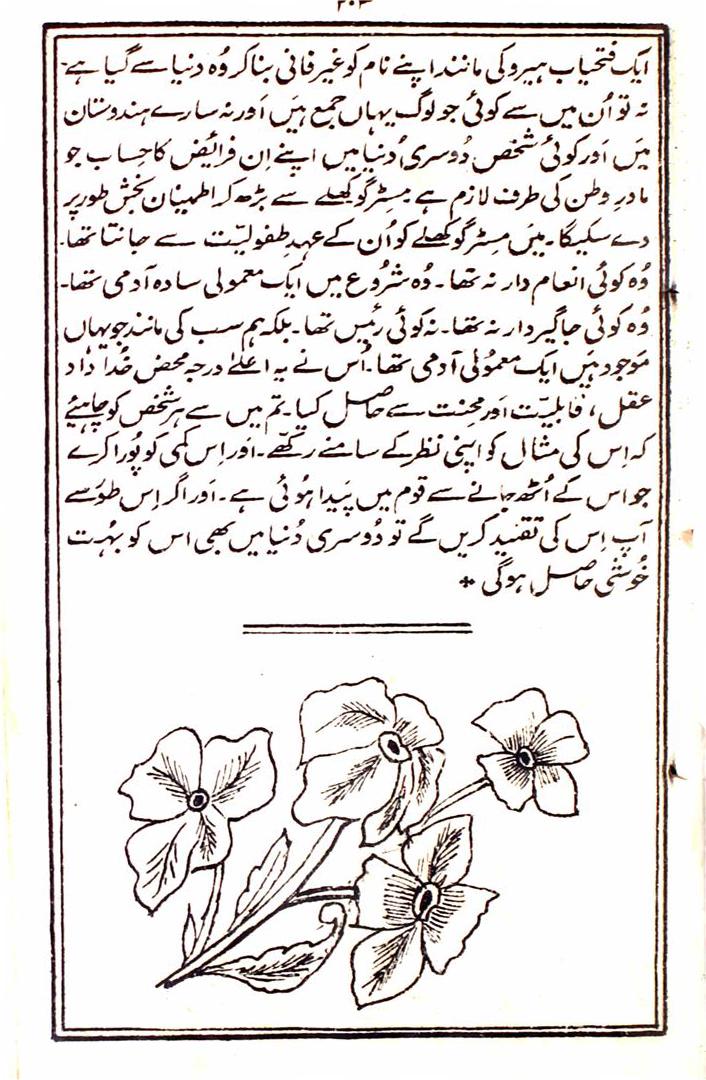 ایک فتحیاب ہیرو کی مانند اپنے نام کو غیر فانی بنا کر وُہ دنیا سے گیا ہے۔
نہ تو اُن میں سے کوئی جو لوگ یہاں جمع ہیَں اَور نہ سارے ہندوستان
میَں اَور کوئی شخص دُوسری دُنیا میں اپنے اِن فرائیض کا حِساب جو
مادرِ وطن کی طرف لازم ہے مِسٹر گوکھلے سے بڑھ کر اطمینان بخش طور پر
دے سکیگا۔ میَں مِسٹر گوکھلے کو اُن کے عہدِ طفولیّت سے جانتا تھا۔
وُہ کوئی انعام دار نہ تھا۔ وُہ شرُوع میں ایک معمولی سادہ آدمی تھا۔
وُہ کوئی جاگیردار نہ تھا۔ نہ کوئی رئیس تھا۔ بلکہ ہم سب کی مانند جو یہاں
موَجود ہیَں ایک معمُولی آدمی تھا۔ اُس نے یہ اعلےٰ درجہ محض خُداداد
عقل، قابلیّت اَور مِحنت سے حاصِل کیا۔ تم میں سے ہر شخص کو چاہیئے
کہ اِس کی مثال کو اپنی نظر کے سامنے رکھّے۔ اَور اِس کمی کو پُورا کرے
جو اس کے اُٹھ جانے سے قوم میں پَیدا ہوُئی ہے۔ اَور اگر اِس طوَر سے
آپ اِس کی تقلید کریں گے تو دُوسری دُنیا میں بھی اس کو بہُت
خُوشی حاصِل ہوگی *